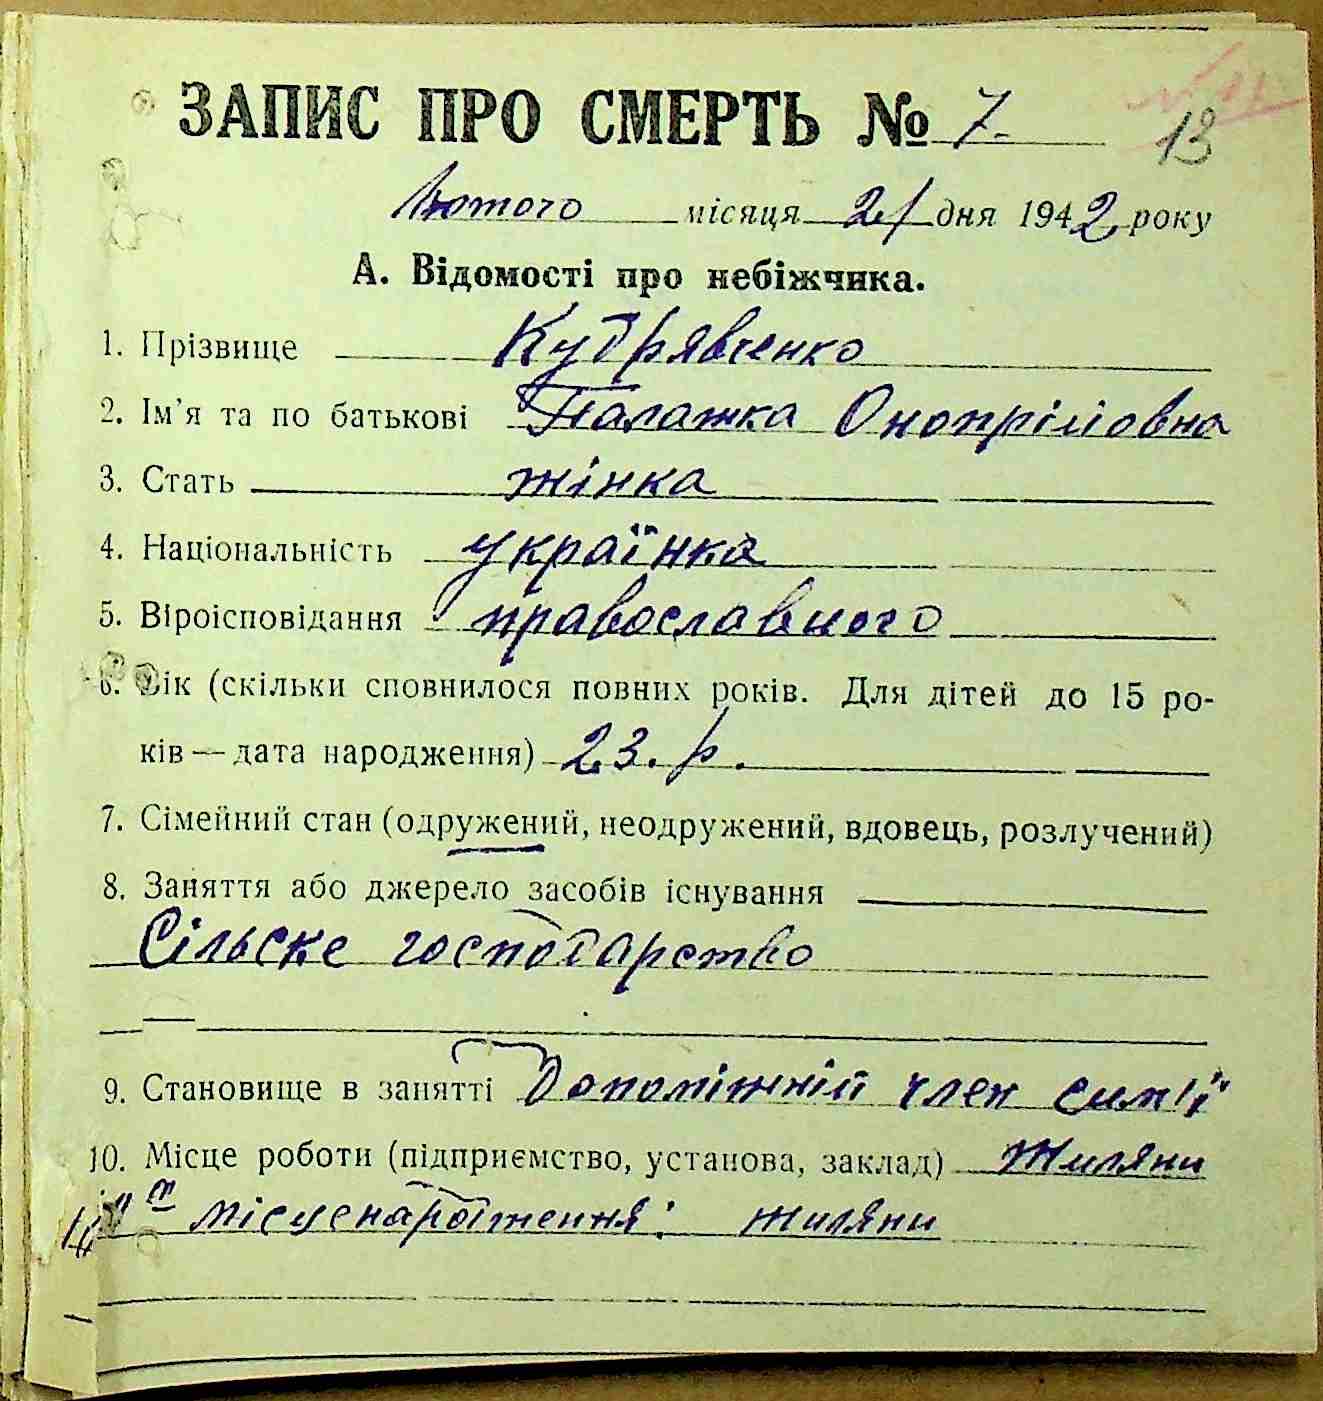 ЗАПИС ПРО СМЕРТЬ № 7.
13
Лютого місяця 21 дня 1942 року
А. Відомості про небіжчика.
1. Прізвище Кудрявченко
2. Ім’я та по батькові Палажка Онопріївна
3. Стать жінка
4. Національність українка
5. Віроісповідання православного
6. Вік (скільки сповнилося повних років. Для дітей до 15 ро-
ків — дата народження) 23. р.
7. Сімейний стан (одружений, неодружений, вдовець, розлучений)
8. Заняття або джерело засобів існування
Сільске господарство
9. Становище в занятті Допоміжній член сим'ї
10. Місце роботи (підприємство, установа, заклад) Жиляни
місценародження: Жиляни